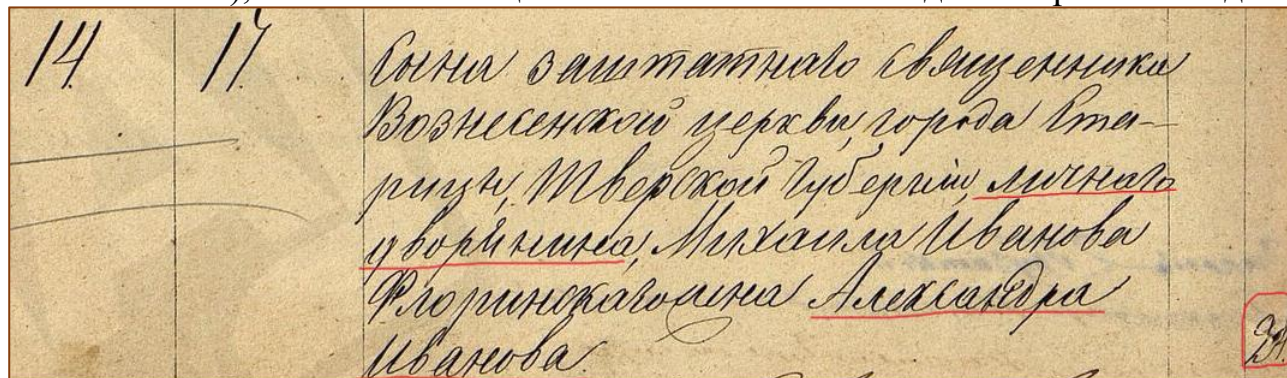 14. 17. Сына заштатнаго священника
Вознесенской церкви, города Ста-
рицы, Тверской губернiи, личнаго
дворянина, Михаила Иванова
Флоринскаго жена Александра
Иванова.